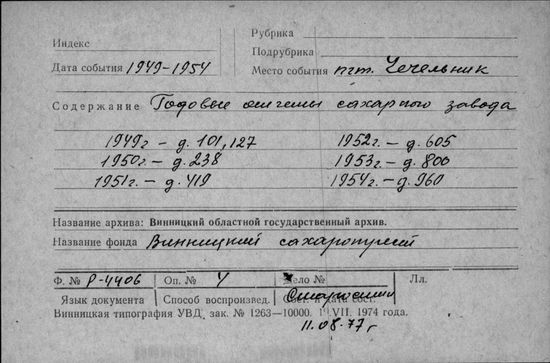 Рубрика
Индекс
Подрубрика
Дата события 1949-1954
Место события пгт. Чечельник
Содержание Годовые отчеты сахарного завода
1949г – д. 101, 127 1952г – д. 605
1950г – д. 238 1953г – д. 800
1951г – д. 419 1954г – д. 960
Название архива: Винницкий областной государственный архив.
Название фонда Винницкий сахаротрест
Ф. № Р-4406 Оп. № 4 Дело № Лл.
Язык документа Способ воспроизвед.
Винницкая типография УВД, зак. № 1263—10000. 1 VII. 1974 года.
11.08.77г